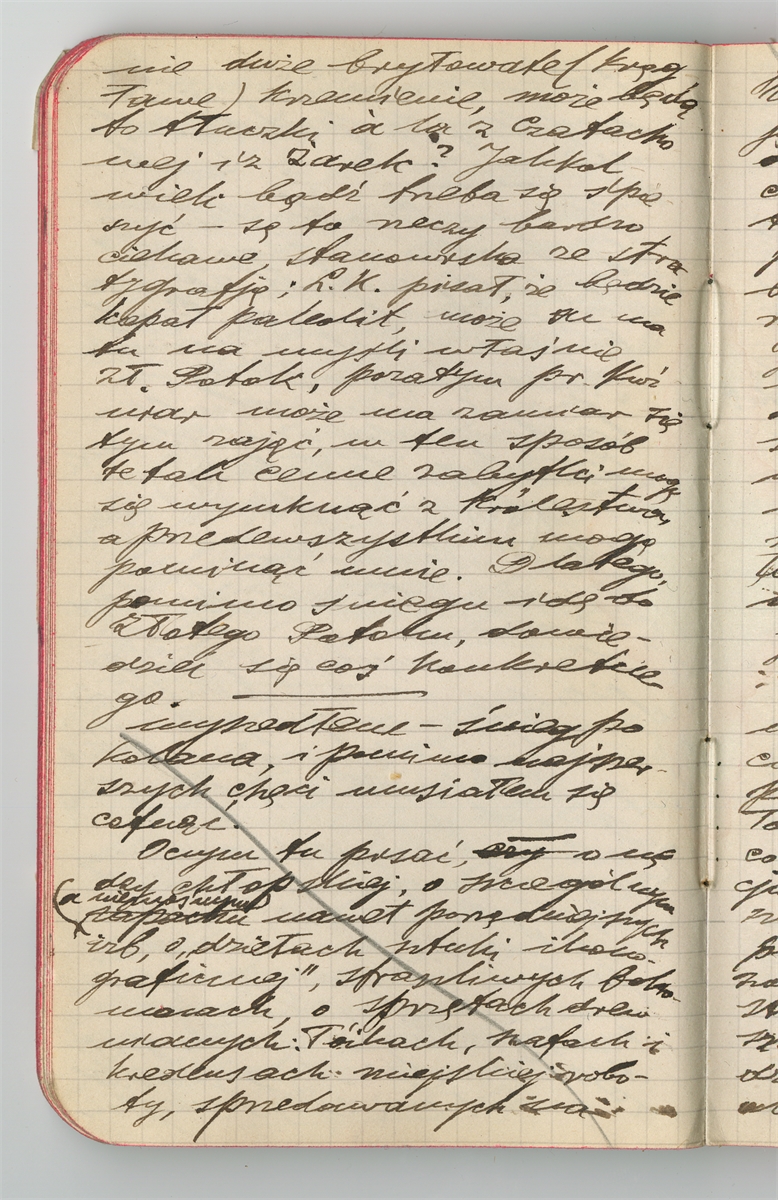 nie duże bryłowate (krąg-
ławe) krzemienie, może będą
to tłuczki à la z Czatacho
wej i z Żarek? Jakkol-
wiek bądź trzeba się śpie
szyć – są to rzeczy bardzo
ciekawe, stanowiska ze stra
tygrafją; L. K. pisał, że będzie
kopał paleolit, może on ma
tu na myśli właśnie
Zł. Potok, pozatym pr.
może ma zamiar się
tym zająć, w ten sposób
te tak cenne zabytki mogą
się wymknąć z Królestwa,
a przedewszystkim mogą
pominąć mnie. Dlatego,
pomimo śniegu idę do
Złotego Potoku, dowie-
dzieć się coś konkretne
go.
wyszedłem – śnieg po
kolana, i pomimo najszer-
szych chęci musiałem się
cofnąć.
Oczym tu pisać, czy o nę
dzy chłopskiej, o szczególnym
(a nieznośnym)
zapachu nawet porządniejszych
izb, o „dziełach sztuki ikono-
graficznej", straszliwych
o sprzętach drew
nianych: łóżkach, szafach i
kredensach miejskiej robo-
ty, sprzedawanych na